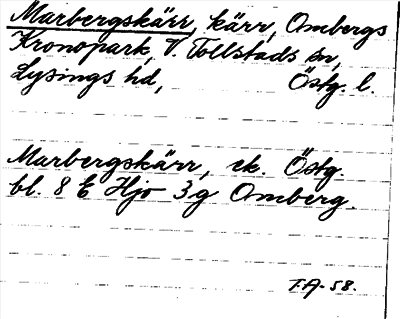 Marbergskärr, kärr, Ombergs
Kronopark, V. Tollstads sn,
Lysings hd, Östg. l.
Marbergskärr, ek. Östg.
bl. 8 E Hjo 3g Omberg.
T.A-58.